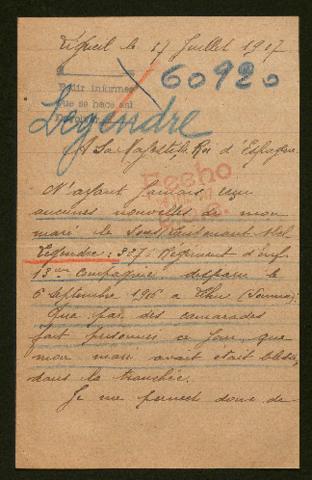 le 17 Juillet 1917
60920
Pedir informes
que se hace asi
Legendre
A Sa Majesté le Roi d'Espagne
Hecho
N'ayant jamais reçu
aucunes nouvelles de mon
mari le Sous Lieutenant
Legendre: 327e Régiment d'Inf
13eme Compagnie disparu le
6 Septembre 1916 a (Somme);
Que par des camarades
fait prisonnier ce jour, que
mon mari avait etait blessé,
dans la tranchée.
Je me permet donc de